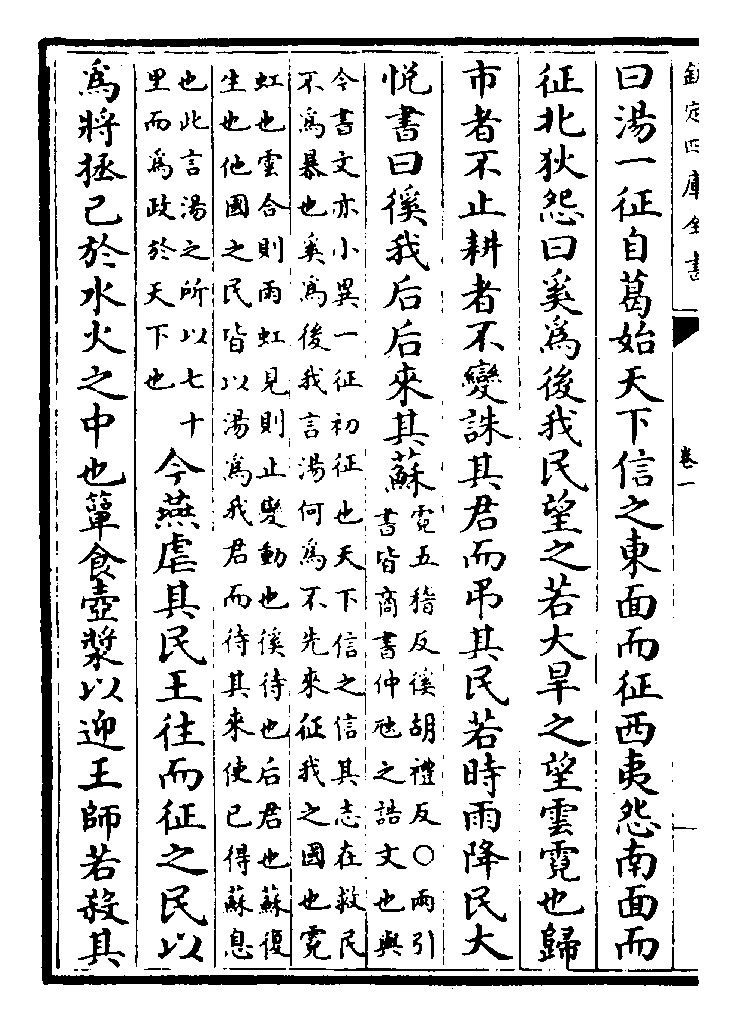 欽定四庫全書
卷一
曰湯一征自葛始天下信之東面而征西夷怨南面而
征北狄怨曰奚為後我民望之若大旱之望雲霓也歸
市者不止耕者不變誅其君而弔其民若時雨降民大
悅書曰徯我后后來其蘇
霓五稽反徯胡禮反○兩引
書皆商書仲虺之誥文也與
今書文亦小異一征初征也天下信之信其志在救民
不為暴也奚為後我言湯何為不先來征我之國也霓
虹也雲合則雨虹見則止變動也徯待也后君也蘇復
生也他國之民皆以湯為我君而待其來使已得蘇息
也此言湯之所以七十
里而為政於天下也
今燕虐其民王往而征之民以
為將拯己於水火之中也簞食壺漿以迎王師若殺其